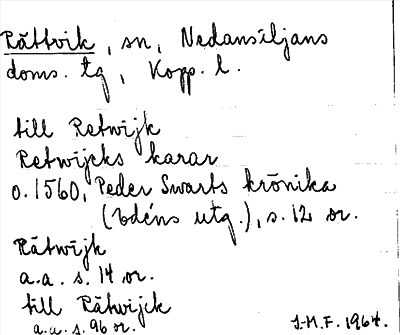 Rättvik, sn, Nedansiljans
doms. tg, Kopp. l.
till Retwijk
Retwijcks karar
o. 1560, Peder Swarts krönika
(Edéns utg.), s. 12 or.
Rätwijk
a.a. s. 14 or.
till Rätwijck
a.a. s. 96 or.
I.M.F. 1964.